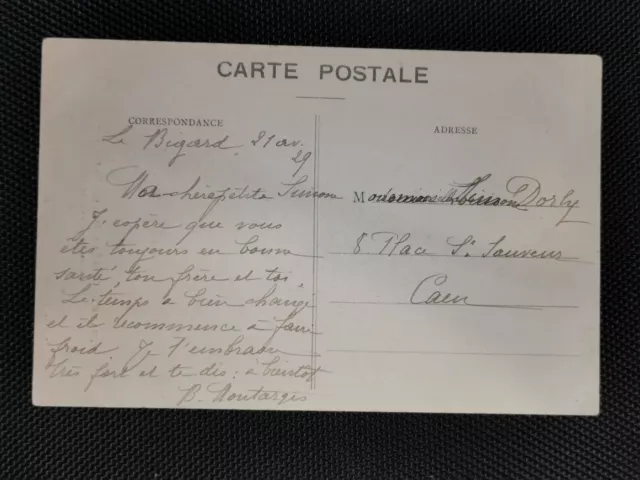 CARTE POSTALE
CORRESPONDANCE
Le Bigard, 21 av.
29
Ma chère petite Simone
J'espère que vous
êtes toujours en bonne
santé, ton frère et toi.
Le temps a bien changé
et il recommence à faire
froid. Je t'embrasse
très fort et te dis : à bientôt
B. Montargis
ADRESSE
M Dorly
8 Place St Sauveur
Caen